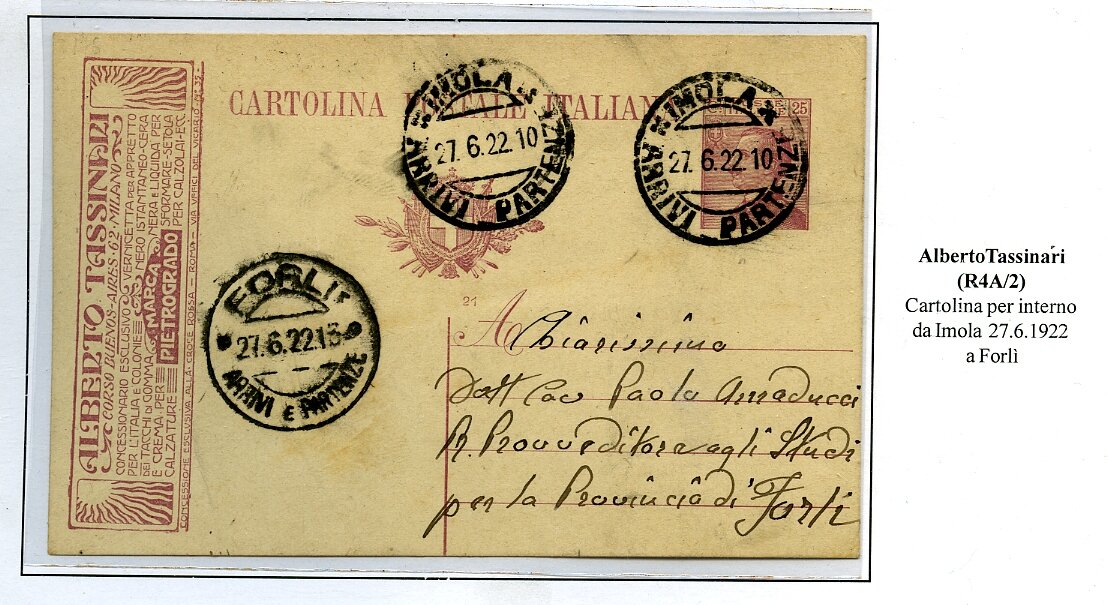 CARTOLINA POSTALE ITALIANA
25
IMOLA
27. 6. 22 10
ARRIVI - PARTENZ
IMOLA
27. 6. 22 10
ARRIVI - PARTENZ
ALBERTO TASSINARI
CORSO BUENOS-AIRES-62-MILANO
CONCESSIONARIO ESCLUSIVO
PER L'ITALIA E COLONIE
DEI TACCHI DI GOMMA
E CREMA PER
CALZATURE
MARCA
PIETROGRADO
VERNICETTA PER APPRETTO
NERO ISTANTANEO-CERA
NERA E LIQUIDA PER
SFORMARE-SETOLE
PER CALZOLAI-ECC.
CONCESSIONE ESCLUSIVA ALLA CROCE ROSSA - ROMA - VIA UFFICI DEL VICARIO
FORLI'
27.6.22 13
ARRIVI E PARTENZE
21
A Chiarissimo
Dott Cav Paolo Amaducci
R. Provveditore agli Studi
per la Provincia di Forlì
AlbertoTassinari
(R4A/2)
Cartolina per interno
da Imola 27.6.1922
a Forlì